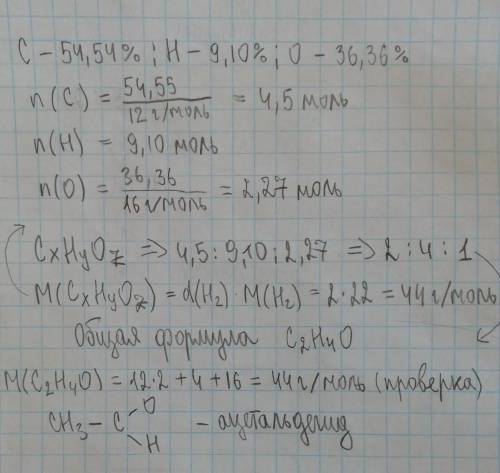 C – 54,54% ; H – 9,10% ; O – 36,36%
n(C) = 54,55 / 12 г/моль = 4,5 моль
n(H) = 9,10 моль
n(O) = 36,36 / 16 г/моль = 2,27 моль
CxHyOz => 4,5 : 9,10 ; 2,27 => 2 : 4 : 1
M(CxHyOz) = d(H₂) · M(H₂) = 2·22 = 44 г/моль
Общая формула C₂H₄O
M(C₂H₄O) = 12·2 + 4 + 16 = 44 г/моль (проверка)
O
CH₃ – C – ацетальдегид
H